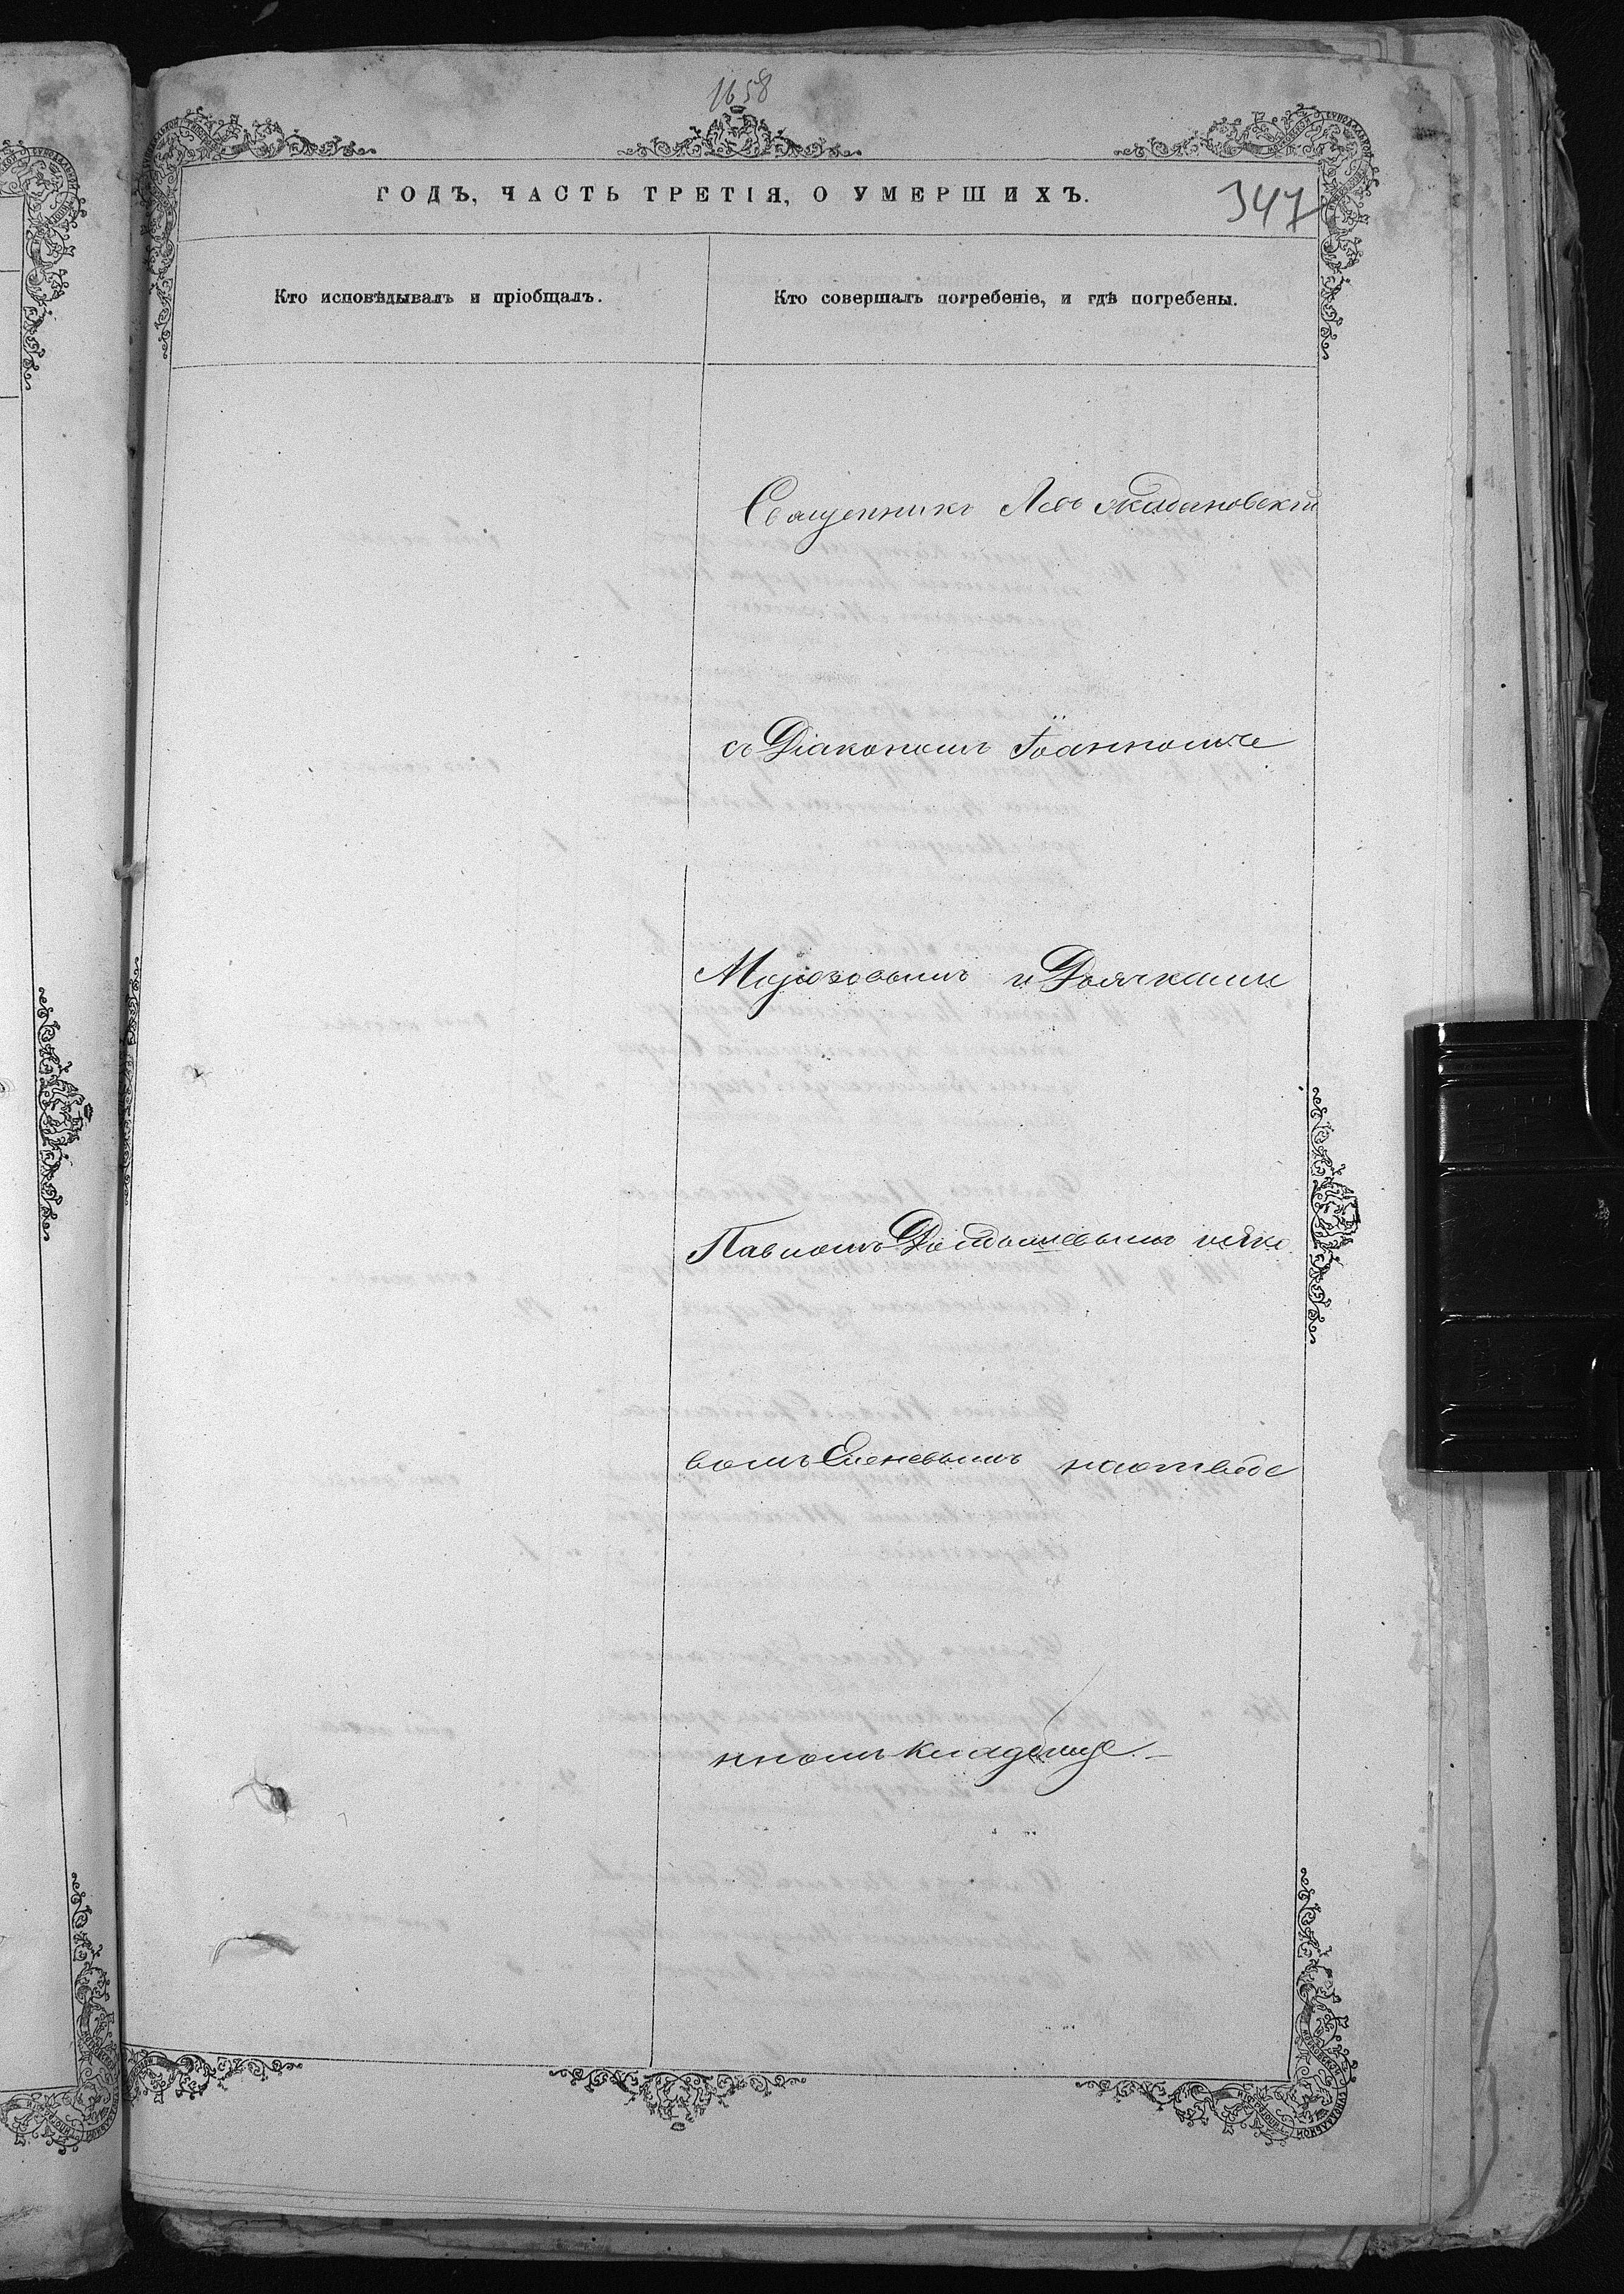 1658
ГОДЪ, ЧАСТЬ ТРЕТІЯ, О УМЕРШИХЪ.
347
Кто исповѣдывалъ и пріобщалъ.
Кто совершалъ погребеніе, и гдѣ погребены.
Священникъ Левъ
съ Діакономъ Іоанномъ
Морозовымъ и Дьячками
Павломъ иЯко
вомъ наотведе
нномъ кладбище.